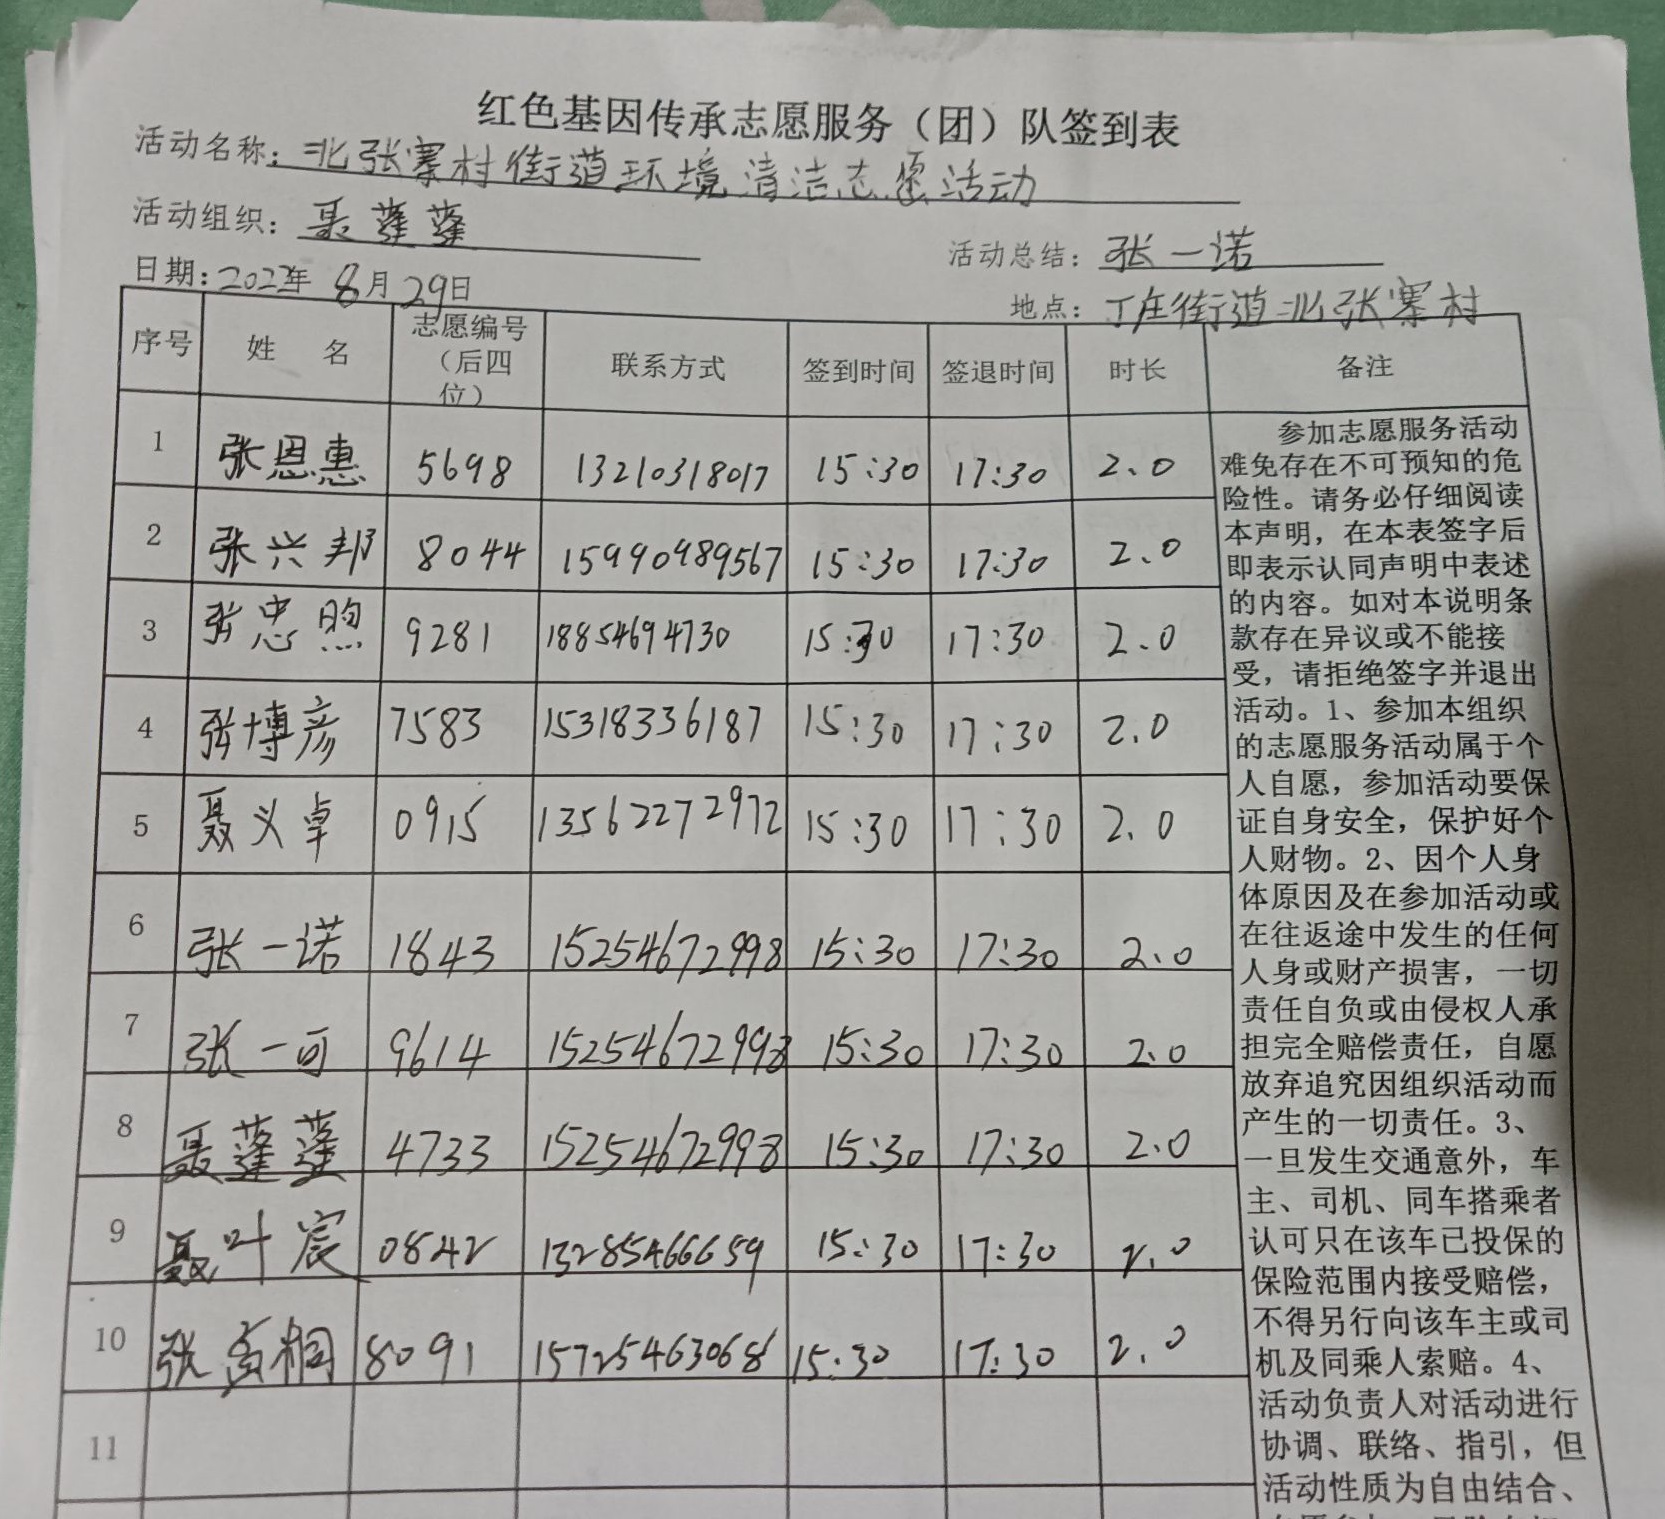 红色基因传承志愿服务（团）队签到表
活动名称：北张寨村街道环境清洁志愿活动
活动组织：聂蓬蓬
活动总结：张一诺
日期：2022年 8月29日
地点：丁庄街道北张寨村
序号 姓 名 志愿编号（后四位） 联系方式 签到时间 签退时间 时长 备注
1 张恩惠 5698 13210318017 15:30 17:30 2.0
2 张兴邦 8044 15990989567 15:30 17:30 2.0
3 张忠煦 9281 18854694730 15:30 17:30 2.0
4 张博彦 7583 15318336187 15:30 17:30 2.0
5 聂义卓 0915 13562272972 15:30 17:30 2.0
6 张一诺 1843 15254672998 15:30 17:30 2.0
7 张一可 9614 15254672998 15:30 17:30 2.0
8 聂蓬蓬 4733 15254672998 15:30 17:30 2.0
9 聂叶宸 0842 13285466659 15:30 17:30 2.0
10 张 桐 8091 15725463068 15:30 17:30 2.0
11
参加志愿服务活动
难免存在不可预知的危
险性。请务必仔细阅读
本声明，在本表签字后
即表示认同声明中表述
的内容。如对本说明条
款存在异议或不能接
受，请拒绝签字并退出
活动。1、参加本组织
的志愿服务活动属于个
人自愿，参加活动要保
证自身安全，保护好个
人财物。2、因个人身
体原因及在参加活动或
在往返途中发生的任何
人身或财产损害，一切
责任自负或由侵权人承
担完全赔偿责任，自愿
放弃追究因组织活动而
产生的一切责任。3、
一旦发生交通意外，车
主、司机、同车搭乘者
认可只在该车已投保的
保险范围内接受赔偿，
不得另行向该车主或司
机及同乘人索赔。4、
活动负责人对活动进行
协调、联络、指引，但
活动性质为自由结合、